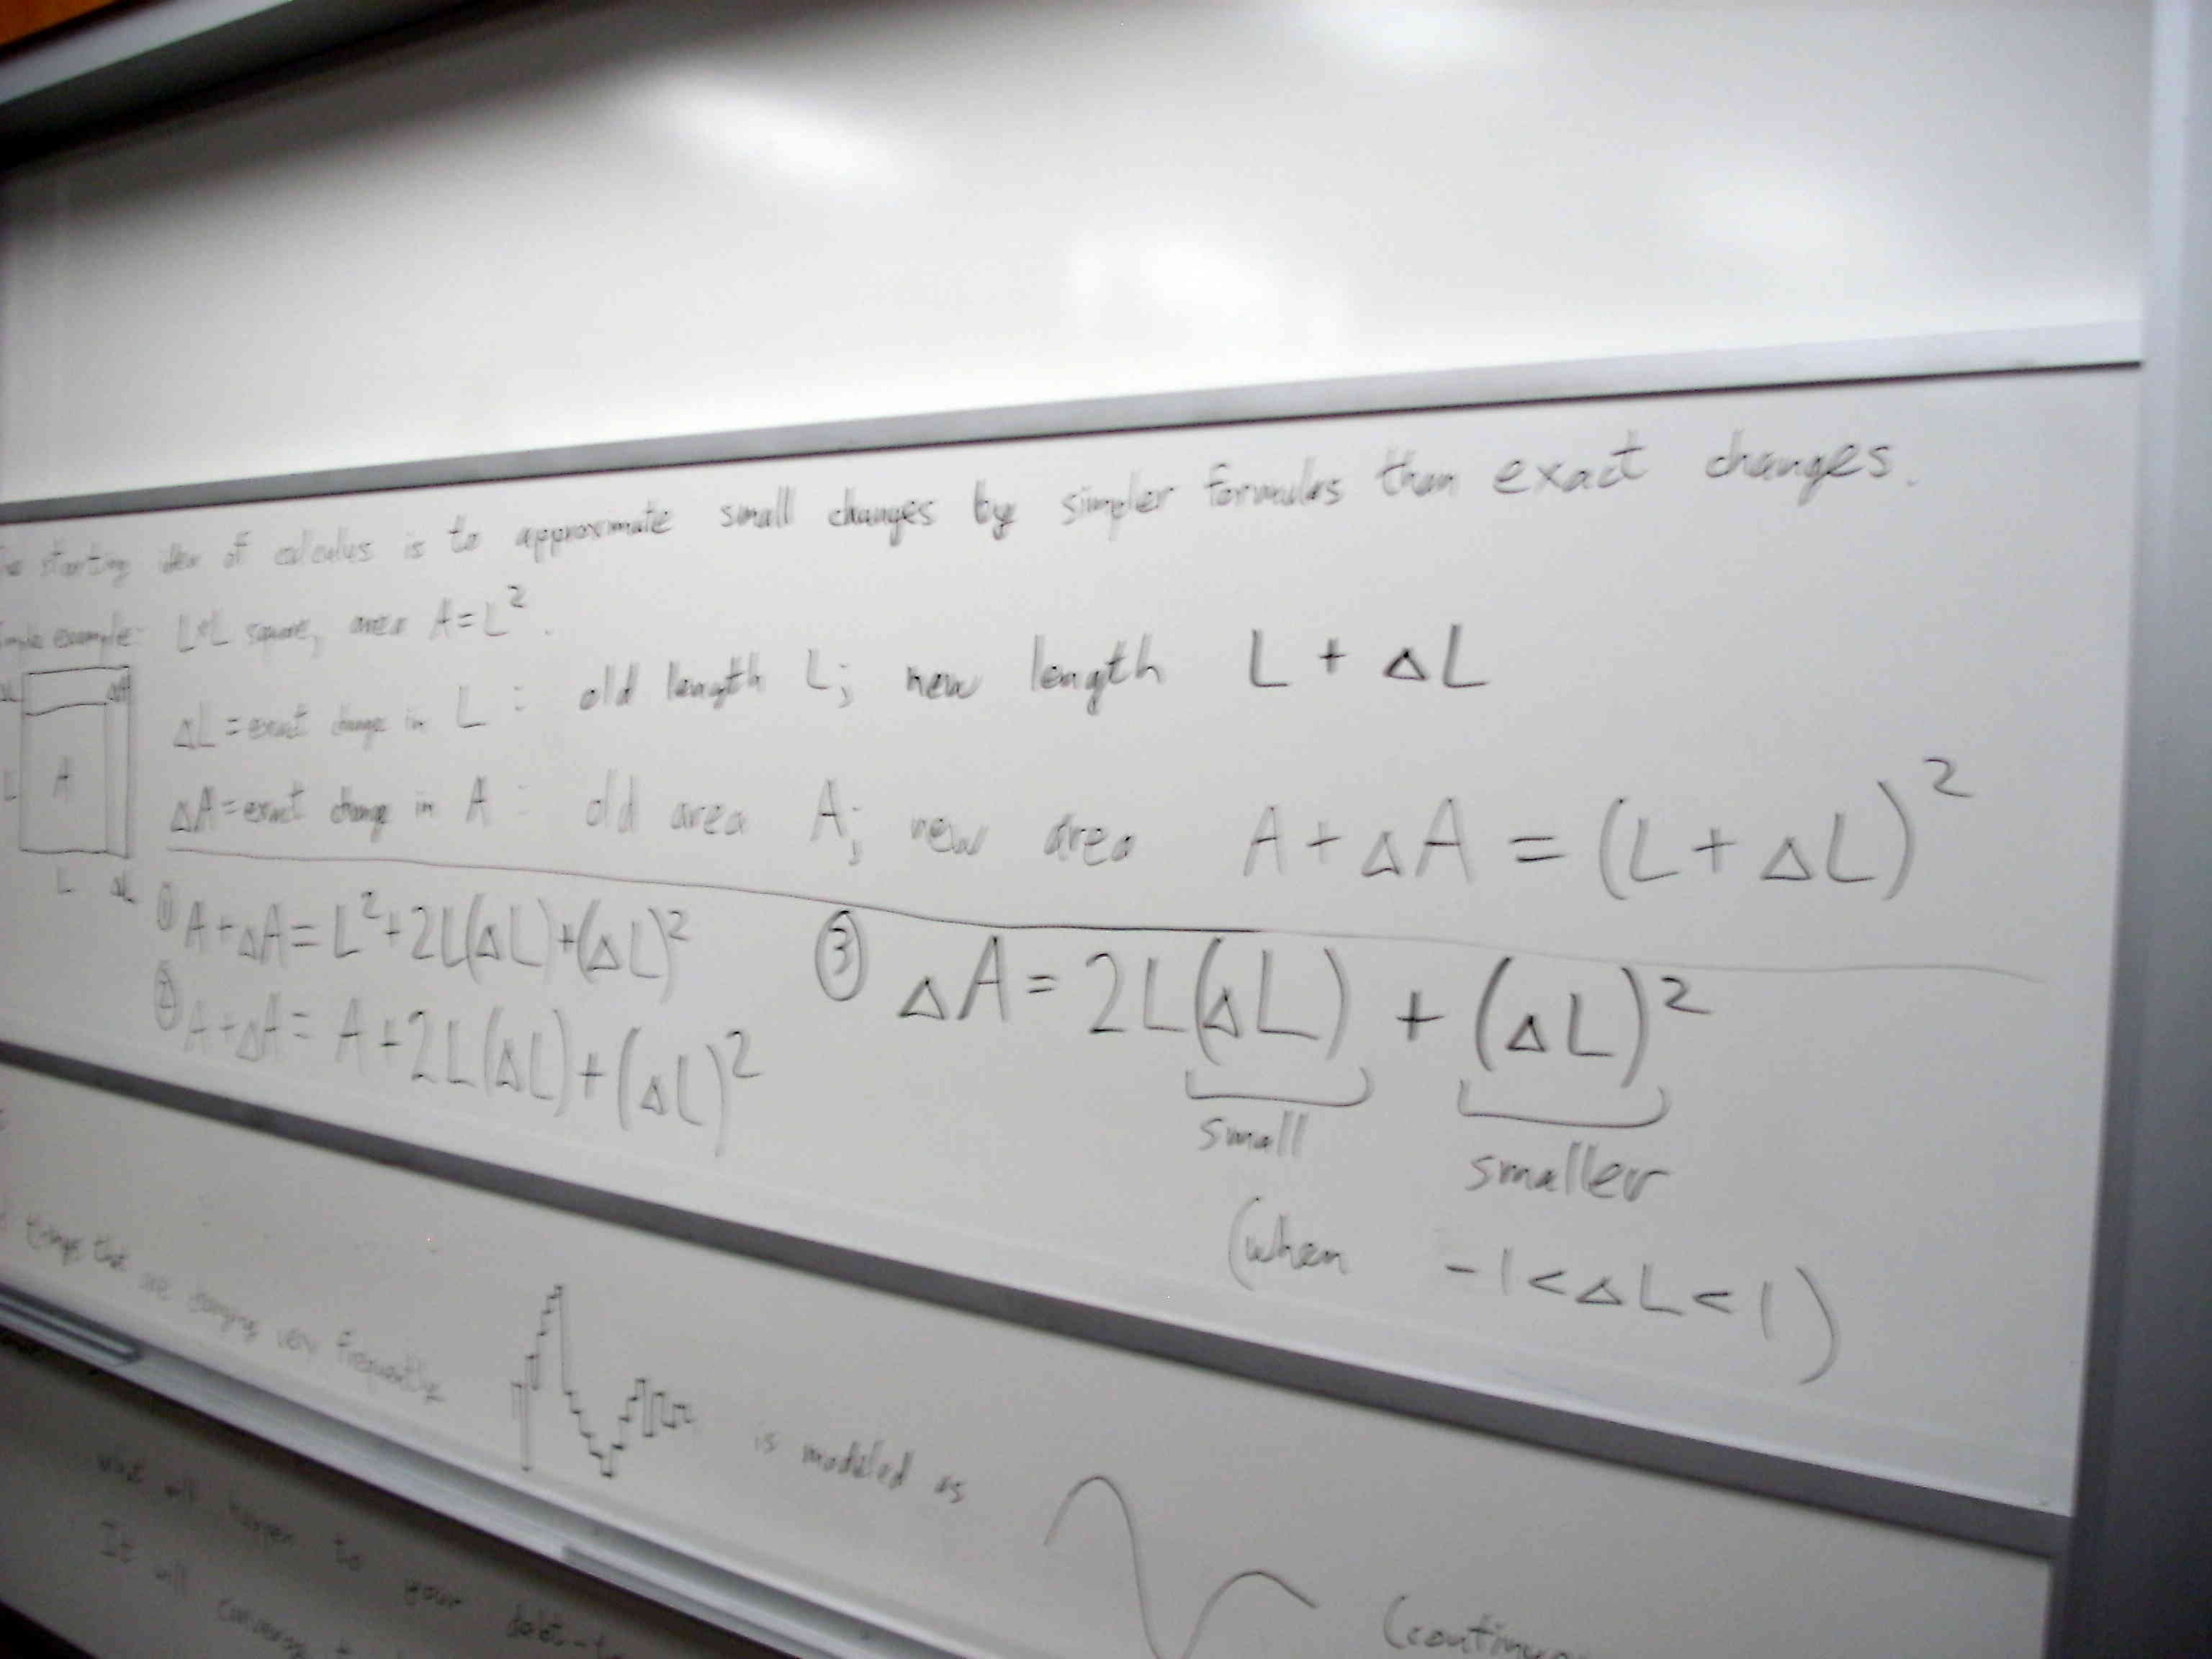 starting idea of calculus is to approximate small changes by simpler formulas than exact changes.
example: L×L square, area A=L².
ΔL = exact change in L : old length L; new length L + ΔL
ΔA = exact change in A : old area A; new area A + ΔA = (L + ΔL)²
ΔL
ΔA
L
A
L ΔL
① A+ΔA = L²+2L(ΔL)+(ΔL)²
② A+ΔA = A+2L(ΔL)+(ΔL)²
③ ΔA = 2L(ΔL) + (ΔL)²
small smaller
(when -1<ΔL<1)
things that are changing very frequently is modeled as (continuo
what will happen to your debt-to
It will converge